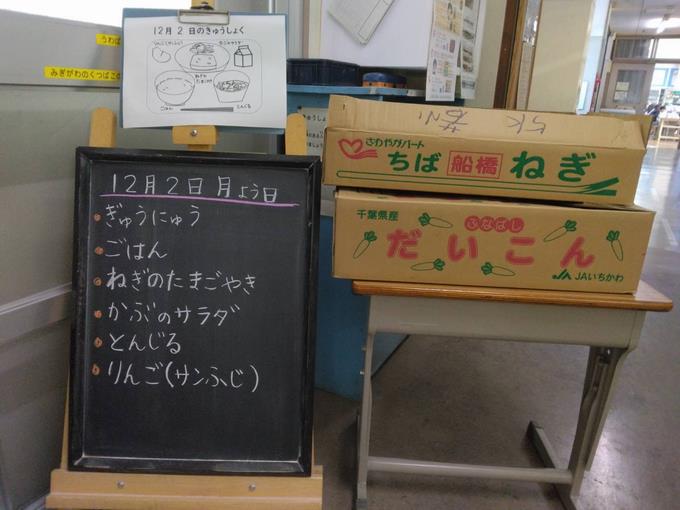 12月2日のきゅうしょく
ごはん
とんじる
うわば
みぎがわのくつばこ
12月2日月よう日
ぎゅうにゅう
ごはん
ねぎのたまごやき
かぶのサラダ
とんじる
りんご(サンふじ)
さわやかハート
ちば 船橋 ねぎ
千葉県産
ふなばし
だいこん
JA JAいちかわ